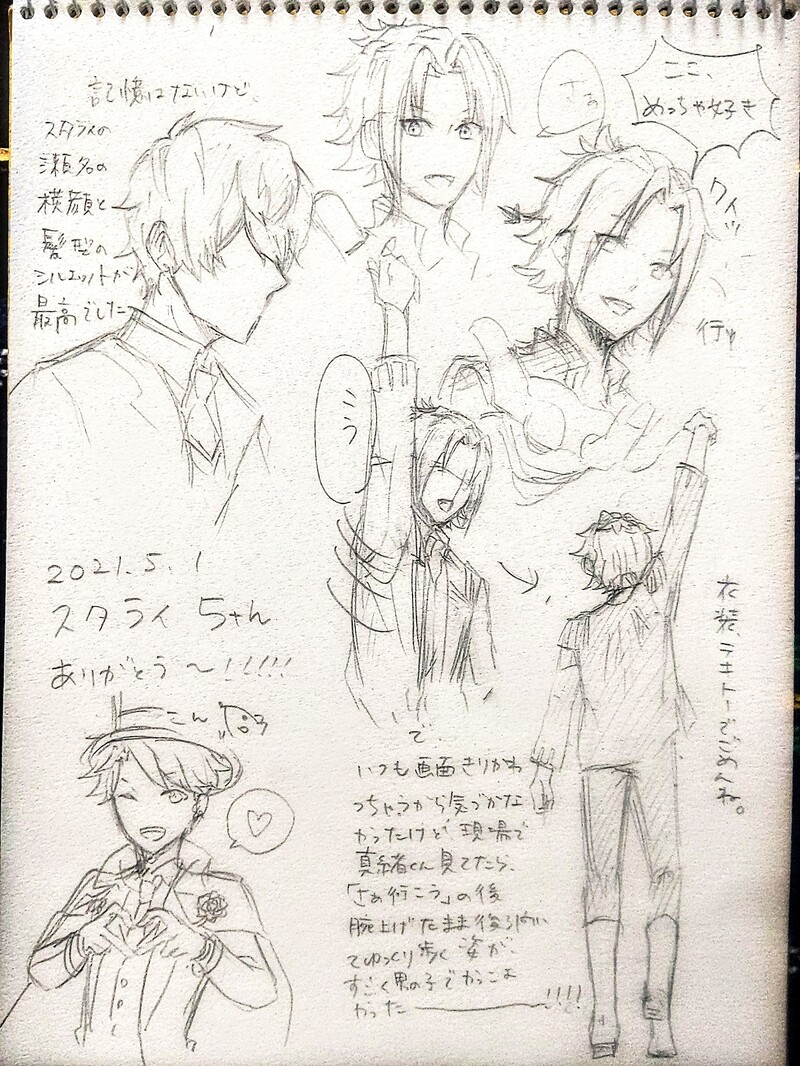 記憶はないけど、
スタライの
瀬名の
横顔と
髪型の
シルエットが
最高でした
さぁ
ここ、
めっちゃ好き
クイッ
行
こう
2021.5.1
スタライ 5ちゃん
ありがとう〜!!!!!
衣装、テキトーでごめんね。
で
いつも画面きりかわ
っちゃうから気づかな
かったけど現場で
真緒くん見てたら、
「さぁ行こう」の後
腕上げたまま後ろ向い
てゆっくり歩く姿が、
すごく男の子でかっこよ
かったーーー!!!!